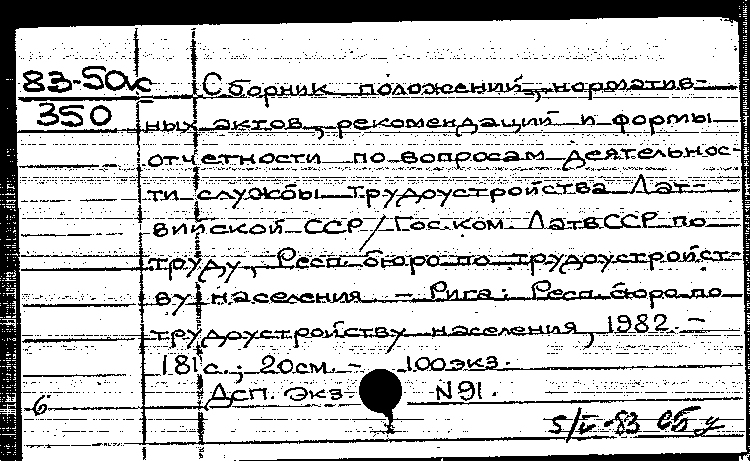 83-50к Сборник положений, норматив-
350 ных актов, рекомендаций и формы
отчетности по вопросам деятельнос-
ти службы трудоустройства Лат-
вийской ССР / Гос. ком. Латв. ССР по
труду, Респ. бюро по трудоустройст-
ву населения. – Рига: Респ. бюро по
трудоустройству населения, 1982. –
181 с.; 20 см. – 100 экз.
Дсп. Экз. N 91.
-6
5/V-83